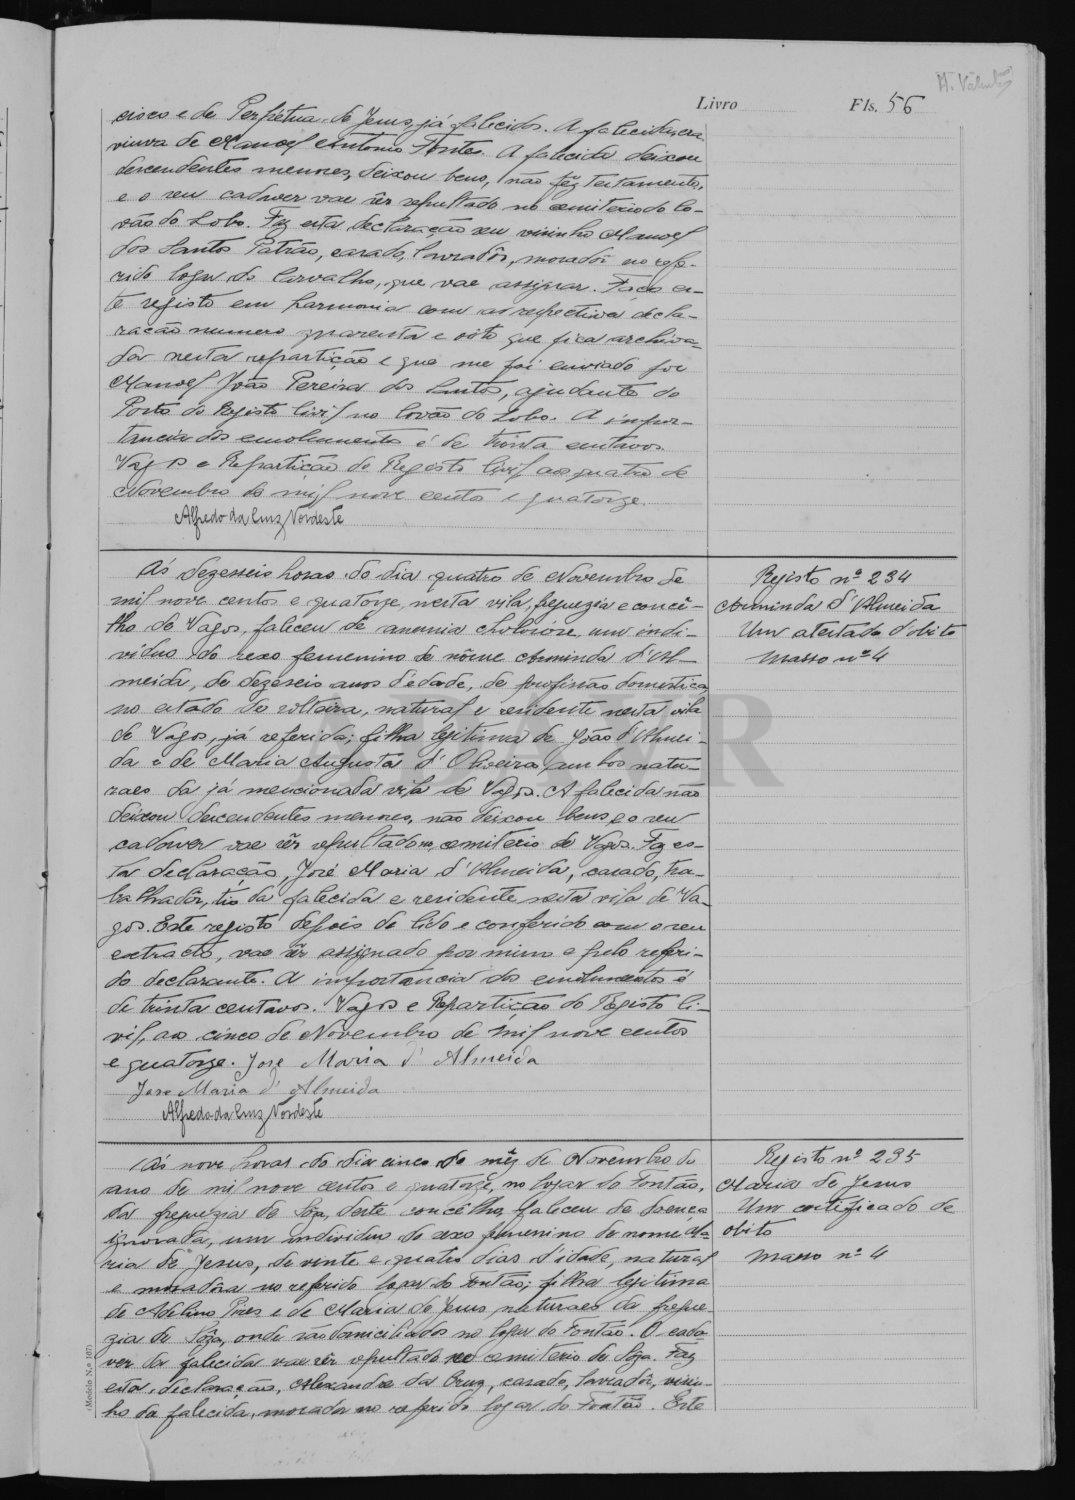 Livro Fls. 56
cisco e de Perpétua de Jesus, já falecidos. A falecida, era
viuva de Manoel Antonio Fontes. A falecida deixou
descendentes menores, deixou bens, não fêz testamento,
e o seu cadaver vae sêr sepultado no cemiterio do Co-
vão do Lobo. Fez esta declaração seu visinho Manoel
dos Santos Patrão, casado, lavradôr, moradôr no refe-
rido logar do Carvalho, que vae assignar. Faço es-
te registo em harmonia com a respectiva decla-
ração numero quarenta e oito que fica archiva-
da nesta repartição e que me foi enviado por
Manoel João Pereira dos Santos, ajudante do
Posto do Registo Civil no Covão do Lobo. A impor-
tancia dos emolumentos é de trinta centavos.
Vagos e Repartição do Registo Civil, aos quatro de
Novembro de mil nove centos e quatorze.
Alfredo da Cruz Nordeste
Ás dezesseis horas do dia quatro de Novembro de
mil nove centos e quatorze, nesta vila, freguezia e concê-
lho de Vagos, faleceu de anemia chlorose, um indi-
viduo do sexo femenino de nôme Arminda d'Al-
meida, de dezeseis anos d'edade, de profissão domestica,
no estado de solteira, natural e residente nesta vila
de Vagos, já referida; filha legitima de João d'Almei-
da e de Maria Augusta d'Oliveira, ambos natu-
raes da já mencionada vila de Vagos. A falecida não
deixou descendentes menores, não deixou bens, e o seu
cadaver vae sêr sepultado no cemiterio de Vagos. Fez es-
ta declaração, José Maria d'Almeida, casado, tra-
balhadôr, tio da falecida e residente nesta vila de Va-
gos. Este registo depois de lido e conferido com o seu
extracto, vae sêr assignado por mim e pelo referi-
do declarante. A importancia dos emolumentos é
de trinta centavos. Vagos e Repartição do Registo Ci-
vil, aos cinco de Novembro de mil nove centos
e quatorze. José Maria d'Almeida
José Maria d'Almeida
Alfredo da Cruz Nordeste
Registo nº 234
Arminda d'Almeida
Um atestado d'obito
Masso nº 4
Ás nove horas do dia cinco do mês de Novembro do
ano de mil nove centos e quatorze, no logar do Fontão,
da freguezia de Sôza, deste concêlho, faleceu de doença
ignorada, um individuo do sexo femenino de nome Ma-
ria de Jesus, de vinte e quatro dias d'idade, natural
e moradôra no referido logar do Fontão; filha legitima
de Adelino Pires e de Maria de Jesus, naturaes da fregue-
zia de Sôza, onde são domiciliados no logar do Fontão. O cada-
ver da falecida vae sêr sepultado no cemiterio de Sôza. Fez
esta declaração, Alexandre da Cruz, casado, lavradôr, visi-
nho da falecida, morador no referido logar do Fontão. Este
Registo nº 235
Maria de Jesus
Um certificado de
obito
Masso nº 4
(Modelo N.º 167)